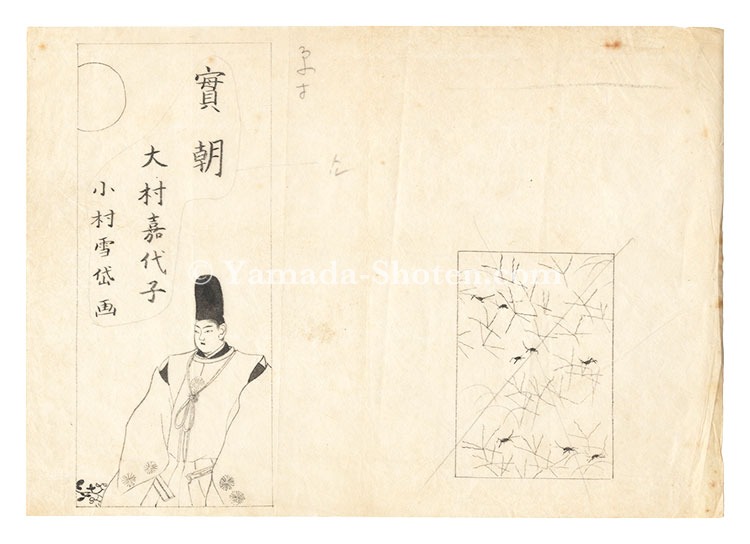 實朝
大村嘉代子
小村雪岱画
© Yamada-Shoten.com